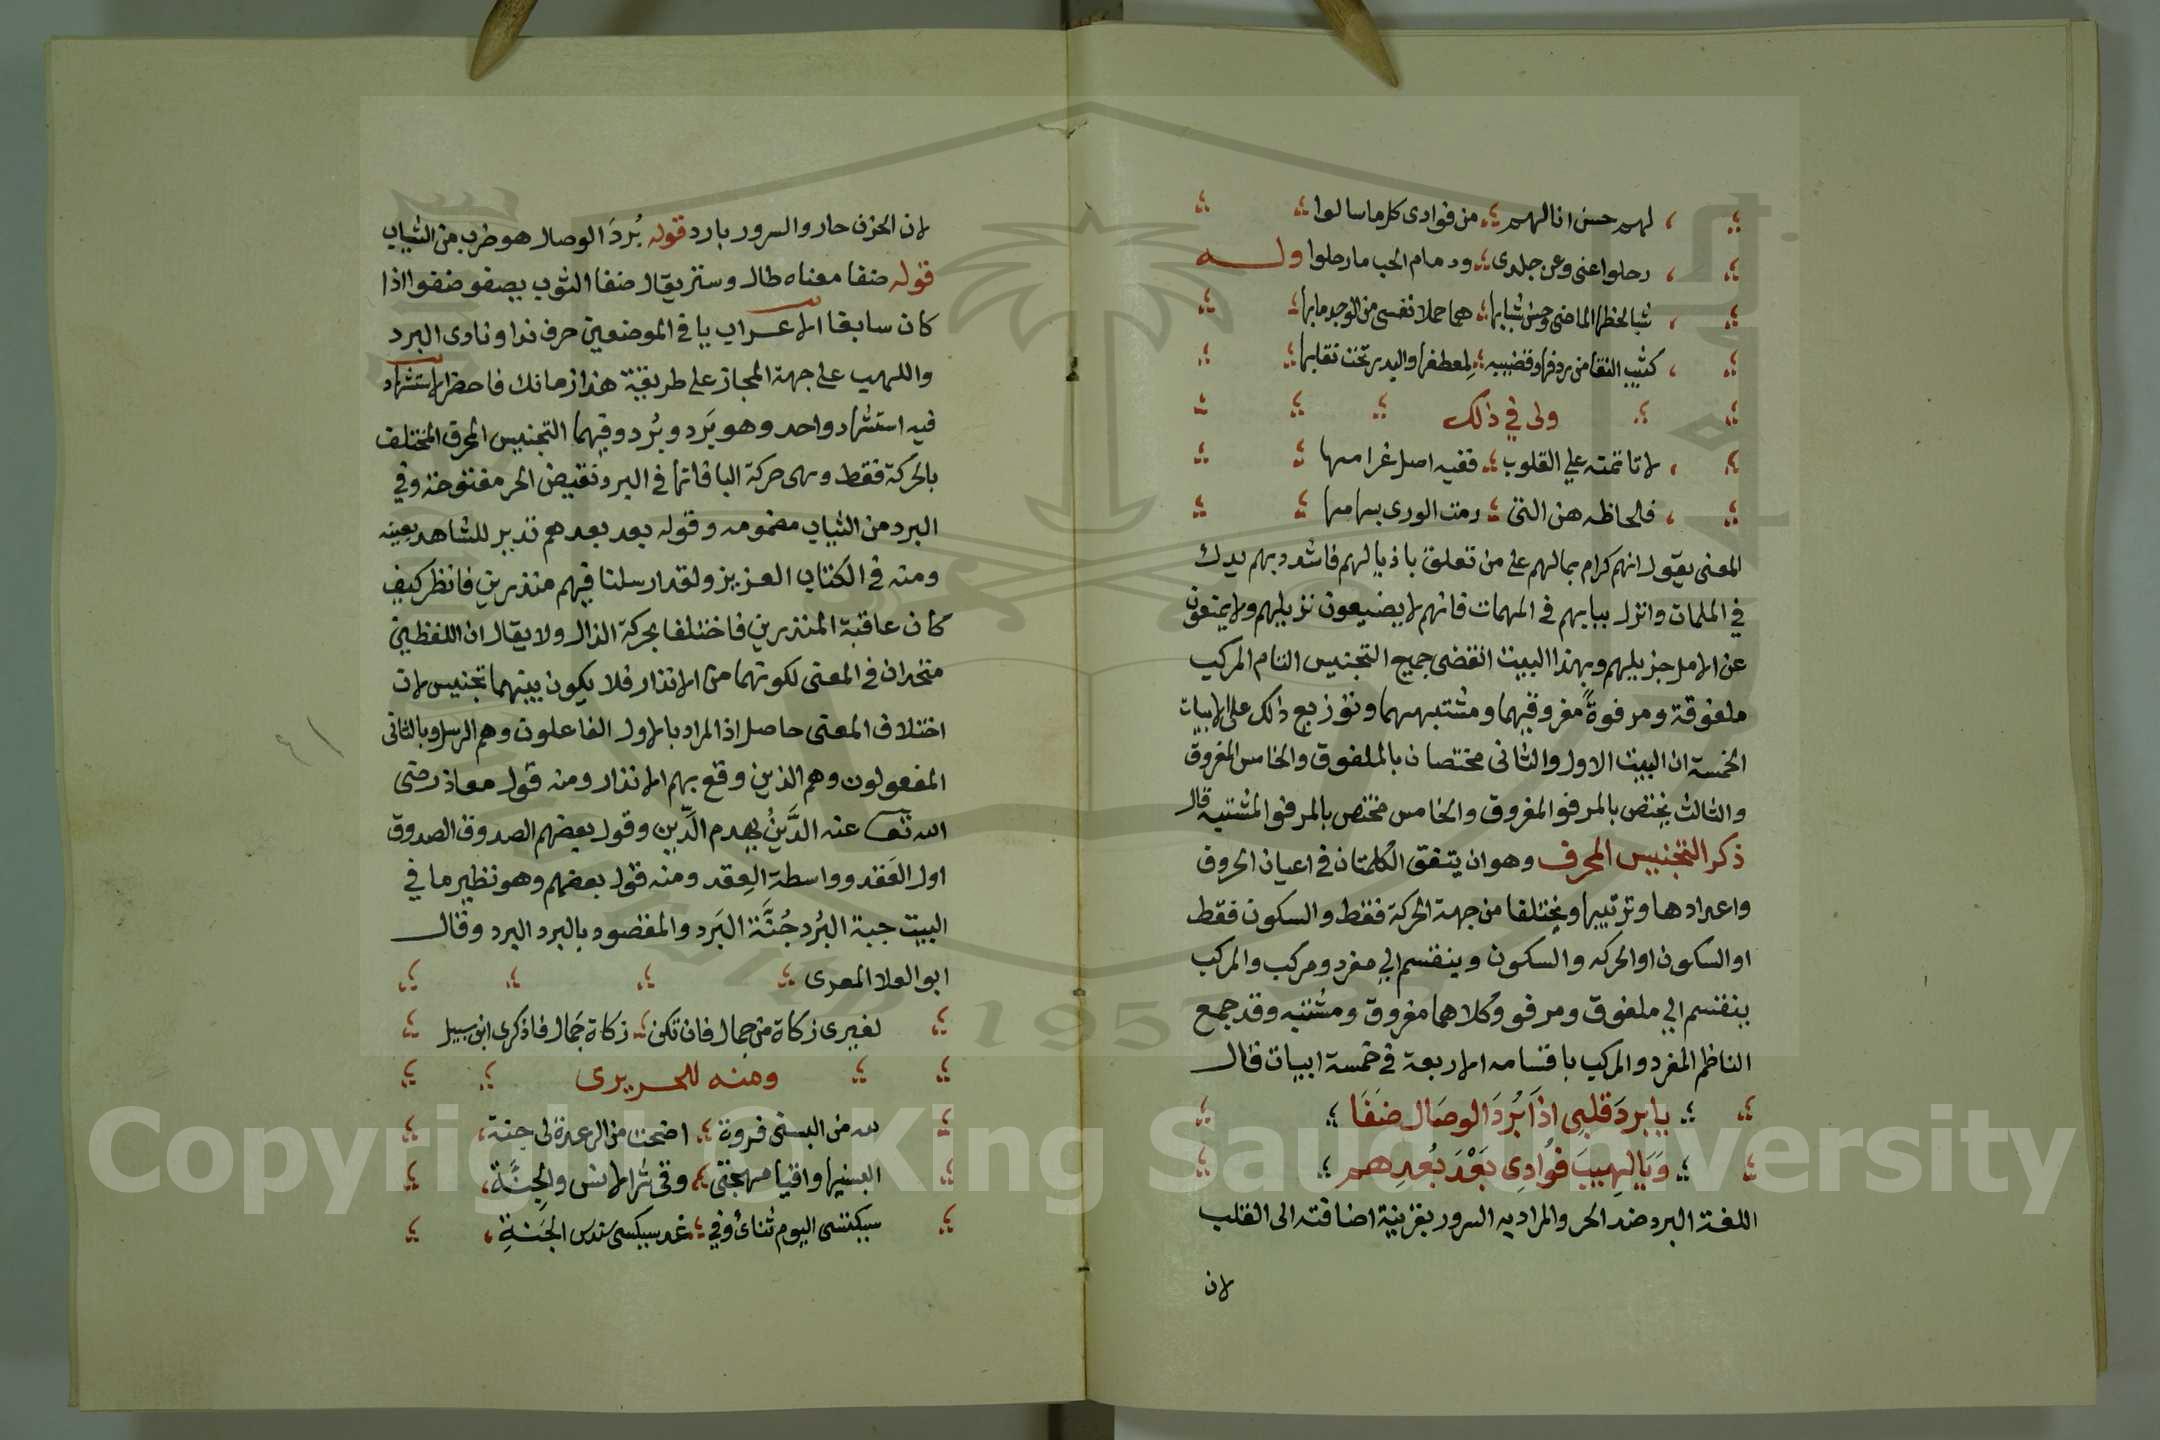 لهم حسن انا لهم ؛ من فوادى كلما سالوا
رحلوا عنى وعن جلدى ؛ ودمام الحب ما رحلوا وله
شبا لحظها الماضى وحسن شبابها ؛ هما حملا نفسى من الوجد ما بها
كثيب النقا من ردفها وقضيبه ؛ لمعطفها والبدر تحت نقابها
ولى في ذلك
لا تاتمنه علي القلوب ؛ ففيه اصل غرامها
فلحاظه هن التى ؛ رمت الورى بسهامها
المعنى يقول انهم كرام بمالهم على من تعلق باذيالهم فاشدد بهم يدك
في الملمات وانزل ببابهم في المهمات فانهم لا يضيعون نزيلهم ولا يمنعون
عن الامل جزيلهم وبهذا البيت انقضى جميع التجنيس التام المركب
ملفوقة ومرفوة مفروقهما ومشتبههما وتوزيع ذالك على الابيات
الخمسة ان البيت الاول والثانى مختصان بالملفوق والخامس المفروق
والثالث يختص بالمرفو المفروق والخامس مختص بالمرفو المشتبه قال
ذكر التجنيس المحرف وهو ان يتفق الكلمتان في اعيان الحروف
واعدادها وترتيبها ويختلفا من جهة الحركة فقط والسكون فقط
او السكون او الحركه والسكون وينقسم الي مفرد ومركب والمركب
ينقسم الي ملفوق ومرفو وكلاهما مفروق ومشتبه وقد جمع
الناظم المفرد والمركب باقسامه الاربعة في خمسة ابيات فقال
يا بردَ قلبِى اذَا بُردَ الوصَال ضَفَا
وَيَا لهيبَ فُوادِى بَعْدَ بُعدِهم
اللغة البرد ضد الحر والمراد به السرور بقرينة اضافته الى القلب
لان
لان الحزن حار والسرور بارد قوله بُردَ الوصال هو ضرب من الثياب
قوله ضفا معناه طال وستر يقال ضفا الثوب يضفو ضفوا اذا
كان سابغا الاعراب يا في الموضعين حرف ندا ونادى البرد
واللهيب على جهة المجاز على طريقة هذا زمانك فاحضر الاستشهاد
فيه استشهاد واحد وهو بَرد وبُرد وفيهما التجنيس المحرف المختلف
بالحركة فقط وهى حركة البا فانها في البرد نقيض الحر مفتوحة وفي
البرد من الثياب مضمومه وقوله بعد بعدهم تدبير للشاهد بعينه
ومنه في الكتاب العزيز ولقد ارسلنا فيهم منذرين فانظر كيف
كان عاقبة المنذرين فاختلفا بحركة الذال ولا يقال ان اللفظين
متحدان في المعنى لكونهما من الانذار فلا يكون بينهما تجنيس لان
اختلاف المعنى حاصل اذ المراد بالاول الفاعلون وهم الرسل وبالثانى
المفعولون وهم الذين وقع بهم الانذار ومنه قول معاذ رضى
الله تعـ عنه الدَّينُ يهدم الدِّين وقول بعضهم الصدوق الصدوق
اول العَقد وواسطة العِقد ومنه قول بعضهم وهو نظير ما في
البيت جبة البُرد جُنَّة البَرد والمقصود بالبرد البرد وقال
ابو العلا المعرى
لغيرى زكاة من جِمال فان تكن ؛ زكاة جَمال فاذكرى ابن سبيل
ومنه للحريرى
لله من البسنى فروة ؛ اضحت من الرعدة لى جنة
البسنيها واقيا مهجتى ؛ وقى شرا الانس والجِنَّة
سيكتسى اليوم ثنائ وفي ؛ غد سيكسى سندس الجَنة
Copyright © King Saud University
1957